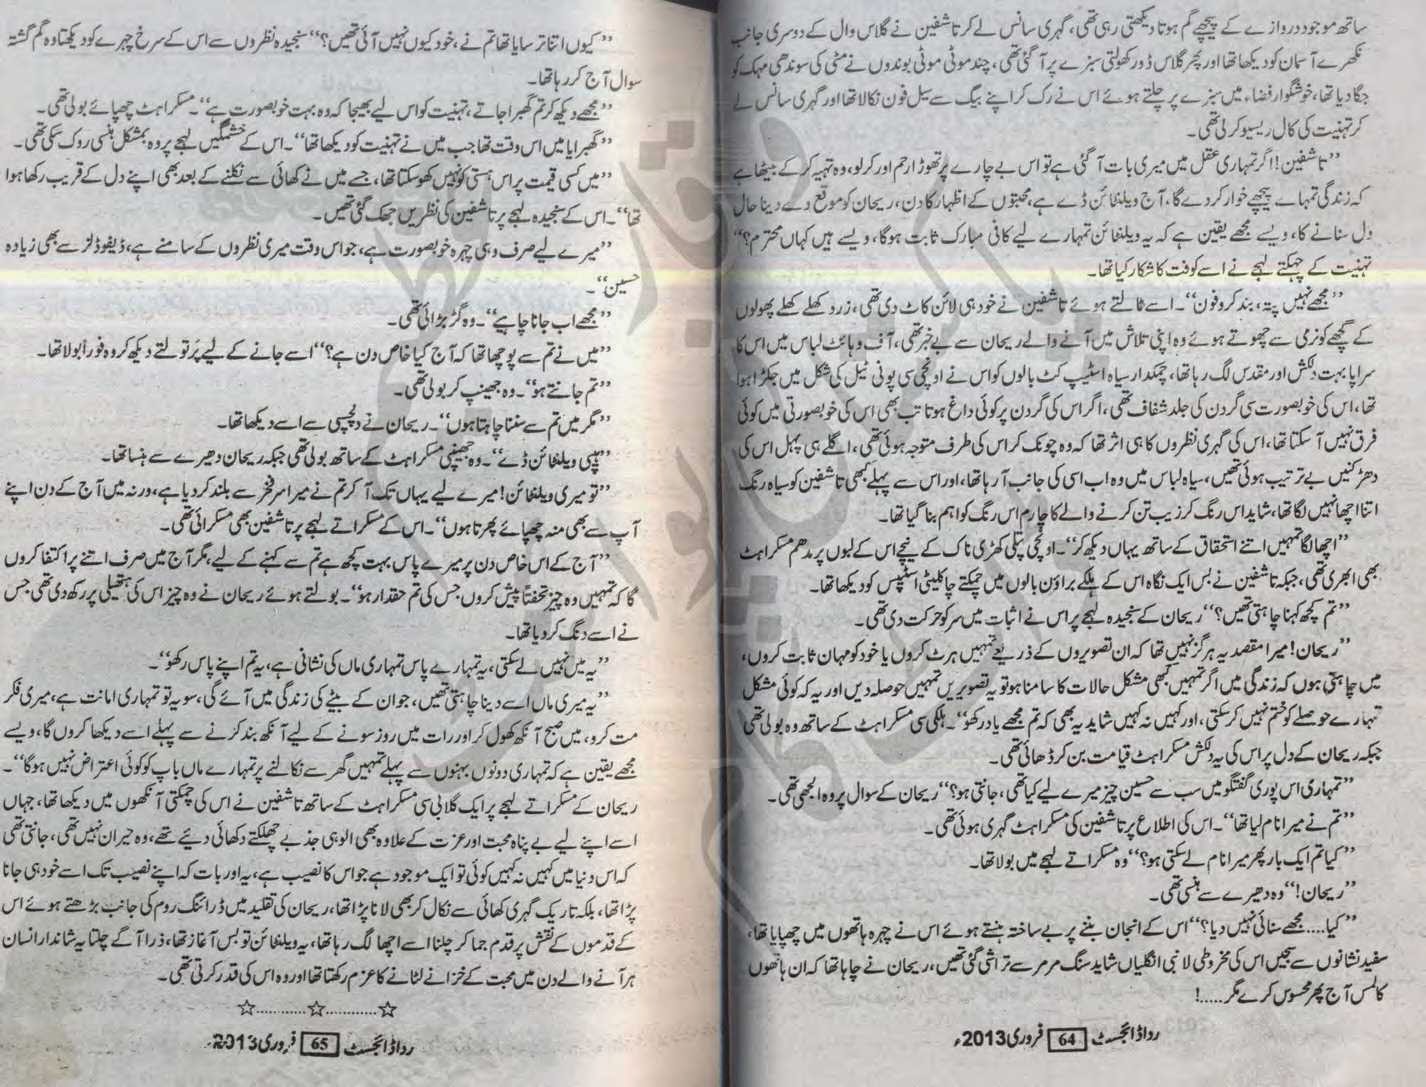 ساتھ موجود دروازے کے پیچھے گم ہوتا دیکھتی رہی تھی، گہری سانس لے کر تاشفین نے گلاس وال کے دوسری جانب
نکھرے آسمان کو دیکھا تھا اور پھر گلاس ڈور کھولتی سبزے پر آ گئی تھی، چند موٹی موٹی بوندوں نے مٹی کی سوندھی مہک کو
جگا دیا تھا، خوشگوار فضاء میں سبزے پر چلتے ہوئے اس نے رک کر اپنے بیگ سے سیل فون نکالا تھا اور گہری سانس لے
کر تہنیت کی کال ریسیو کر لی تھی۔
’’تاشفین! اگر تمہاری عقل میں میری بات آ گئی ہے تو اس بے چارے پر تھوڑا رحم اور کر لو، وہ تہیہ کر کے بیٹھا ہے
کہ زندگی تمہارے پیچھے خوار کر دے گا، آج ویلنٹائن ڈے ہے، محبتوں کے اظہار کا دن، ریحان کو موقع دے دینا حال
دل سنانے کا، ویسے مجھے یقین ہے کہ یہ ویلنٹائن تمہارے لیے کافی مبارک ثابت ہوگا، ویسے ہیں کہاں محترم؟‘‘
تہنیت کے چہکتے لہجے نے اسے کوفت کا شکار کیا تھا۔
’’مجھے نہیں پتہ، بند کرو فون‘‘۔ اسے ٹالتے ہوئے تاشفین نے خود ہی لائن کاٹ دی تھی، زرد کھلے کھلے پھولوں
کے گچھے کو نرمی سے چھوتے ہوئے وہ اپنی تلاش میں آنے والے ریحان سے بے خبر تھی، آف وہائٹ لباس میں اس کا
سراپا بہت دلکش اور مقدس لگ رہا تھا، چمکدار سیاہ اسٹیپ کٹ بالوں کو اس نے اونچی سی پونی ٹیل کی شکل میں جکڑا ہوا
تھا، اس کی خوبصورت سی گردن کی جلد شفاف تھی، اگر اس کی گردن پر کوئی داغ ہوتا تب بھی اس کی خوبصورتی میں کوئی
فرق نہیں آ سکتا تھا، اس کی گہری نظروں کا ہی اثر تھا کہ وہ چونک کر اس کی طرف متوجہ ہوئی تھی، اگلے ہی پہل اس کی
دھڑکنیں بے ترتیب ہوئی تھیں، سیاہ لباس میں وہ اب اسی کی جانب آ رہا تھا، اور اس سے پہلے بھی تاشفین کو سیاہ رنگ
اتنا اچھا نہیں لگا تھا، شاید اس رنگ کو زیب تن کرنے والے کا چارم اس رنگ کو اہم بنا گیا تھا۔
’’اچھا لگا تمہیں اتنے استحقاق کے ساتھ یہاں دیکھ کر‘‘۔ اونچی پتلی کھڑی ناک کے نیچے اس کے لبوں پر مدھم مسکراہٹ
بھی ابھری تھی، جبکہ تاشفین نے بس ایک نگاہ اس کے ہلکے براؤن بالوں میں چمکتے چاکلیٹی اسٹپس کو دیکھا تھا۔
’’تم کچھ کہنا چاہتی تھیں؟‘‘ ریحان کے سنجیدہ لہجے پر اس نے اثبات میں سر کو حرکت دی تھی۔
’’ریحان! میرا مقصد یہ ہرگز نہیں تھا کہ ان تصویروں کے ذریعے تمہیں ہرٹ کروں یا خود کو مہان ثابت کروں،
میں چاہتی ہوں کہ زندگی میں اگر تمہیں کبھی مشکل حالات کا سامنا ہو تو یہ تصویریں تمہیں حوصلہ دیں اور یہ کہ کوئی مشکل
تمہارے حوصلے کو ختم نہیں کر سکتی، اور کہیں نہ کہیں شاید یہ بھی کہ تم مجھے یاد رکھو‘‘۔ ہلکی سی مسکراہٹ کے ساتھ وہ بولی تھی
جبکہ ریحان کے دل پر اس کی یہ دلکش مسکراہٹ قیامت بن کر ڈھائی تھی۔
’’تمہاری اس پوری گفتگو میں سب سے حسین چیز میرے لیے کیا تھی، جانتی ہو؟‘‘ ریحان کے سوال پر وہ الجھی تھی۔
’’تم نے میرا نام لیا تھا‘‘۔ اس کی اطلاع پر تاشفین کی مسکراہٹ گہری ہوئی تھی۔
’’کیا تم ایک بار پھر میرا نام لے سکتی ہو؟‘‘ وہ مسکراتے لہجے میں بولا تھا۔
’’ریحان!‘‘ وہ دھیرے سے ہنسی تھی۔
’’کیا.... مجھے سنائی نہیں دیا؟‘‘ اس کے انجان بننے پر بے ساختہ ہنستے ہوئے اس نے چہرہ ہاتھوں میں چھپایا تھا،
سفید نشانوں سے سجیں اس کی مخروطی لانبی انگلیاں شاید سنگ مرمر سے تراشی گئی تھیں، ریحان نے چاہا تھا کہ ان ہاتھوں
کا لمس آج پھر محسوس کرے مگر.....!
رداڈائجسٹ 64 فروری 2013ء
’’کیوں اتنا ترسایا تھا تم نے، خود کیوں نہیں آئی تھیں؟‘‘ سنجیدہ نظروں سے اس کے سرخ چہرے کو دیکھتا وہ گم گشتہ
سوال آج کر رہا تھا۔
’’مجھے دیکھ کر تم گھبرا جاتے، تہنیت کو اس لیے بھیجا کہ وہ بہت خوبصورت ہے‘‘۔ مسکراہٹ چھپائے بولی تھی۔
’’گھبرایا میں اس وقت تھا جب میں نے تہنیت کو دیکھا تھا‘‘۔ اس کے خشمگیں لہجے پر وہ بمشکل ہنسی روک سکی تھی۔
’’میں کسی قیمت پر اس ہستی کو نہیں کھو سکتا تھا، جسے میں نے کھائی سے نکلنے کے بعد بھی اپنے دل کے قریب رکھا ہوا
تھا‘‘۔ اس کے سنجیدہ لہجے پر تاشفین کی نظریں جھک گئی تھیں۔
’’میرے لیے صرف وہی چہرہ خوبصورت ہے، جو اس وقت میری نظروں کے سامنے ہے، ڈیفوڈلز سے بھی زیادہ
حسین‘‘۔
’’مجھے اب جانا چاہیے‘‘۔ وہ گڑبڑائی تھی۔
’’میں نے تم سے پوچھا تھا کہ آج کیا خاص دن ہے؟‘‘ اسے جانے کے لیے پر تولتے دیکھ کر وہ فوراً بولا تھا۔
’’تم جانتے ہو‘‘۔ وہ جھینپ کر بولی تھی۔
’’مگر میں تم سے سننا چاہتا ہوں‘‘۔ ریحان نے دلچسپی سے اسے دیکھا تھا۔
’’ہیپی ویلنٹائن ڈے‘‘۔ وہ جھینپی مسکراہٹ کے ساتھ بولی تھی جبکہ ریحان دھیرے سے ہنسا تھا۔
’’تو میری ویلنٹائن! میرے لیے یہاں تک آ کر تم نے میرا سر فخر سے بلند کر دیا ہے، ورنہ میں آج کے دن اپنے
آپ سے بھی منہ چھپائے پھرتا ہوں‘‘۔ اس کے مسکراتے لہجے پر تاشفین بھی مسکرائی تھی۔
’’آج کے اس خاص دن پر میرے پاس بہت کچھ ہے تم سے کہنے کے لیے، مگر آج میں صرف اتنے پر اکتفا کروں
گا کہ تمہیں وہ چیز تحفتاً پیش کروں جس کی تم حقدار ہو‘‘۔ بولتے ہوئے ریحان نے وہ چیز اس کی ہتھیلی پر رکھ دی تھی جس
نے اسے دنگ کر دیا تھا۔
’’یہ میں نہیں لے سکتی، یہ تمہارے پاس تمہاری ماں کی نشانی ہے، یہ تم اپنے پاس رکھو‘‘۔
’’یہ میری ماں اسے دینا چاہتی تھیں، جو ان کے بیٹے کی زندگی میں آئے گی، سو یہ تو تمہاری امانت ہے، میری فکر
مت کرو، میں صبح آنکھ کھول کر اور رات میں روز سونے کے لیے آنکھ بند کرنے سے پہلے اسے دیکھا کروں گا، ویسے
مجھے یقین ہے کہ تمہاری دونوں بہنوں سے پہلے تمہیں گھر سے نکالنے پر تمہارے ماں باپ کو کوئی اعتراض نہیں ہوگا‘‘۔
ریحان کے مسکراتے لہجے پر ایک گلابی سی مسکراہٹ کے ساتھ تاشفین نے اس کی چمکتی آنکھوں میں دیکھا تھا، جہاں
اسے اپنے لیے بے پناہ محبت اور عزت کے علاوہ بھی الوہی جذبے چھلکتے دکھائی دیئے تھے، وہ حیران نہیں تھی، جانتی تھی
کہ اس دنیا میں کہیں نہ کہیں کوئی تو ایک موجود ہے جو اس کا نصیب ہے، یہ اور بات کہ اپنے نصیب تک اسے خود ہی جانا
پڑا تھا، بلکہ تاریک گہری کھائی سے نکال کر بھی لانا پڑا تھا، ریحان کی تقلید میں ڈرائنگ روم کی جانب بڑھتے ہوئے اس
کے قدموں کے نقش پر قدم جما کر چلنا اسے اچھا لگ رہا تھا، یہ ویلنٹائن تو بس آغاز تھا، ذرا آگے چلتا یہ شاندار انسان
ہر آنے والے دن میں محبت کے خزانے لٹانے کا عزم رکھتا تھا اور وہ اس کی قدر کرتی تھی۔
☆............☆............☆
رداڈائجسٹ 65 فروری 2013ء